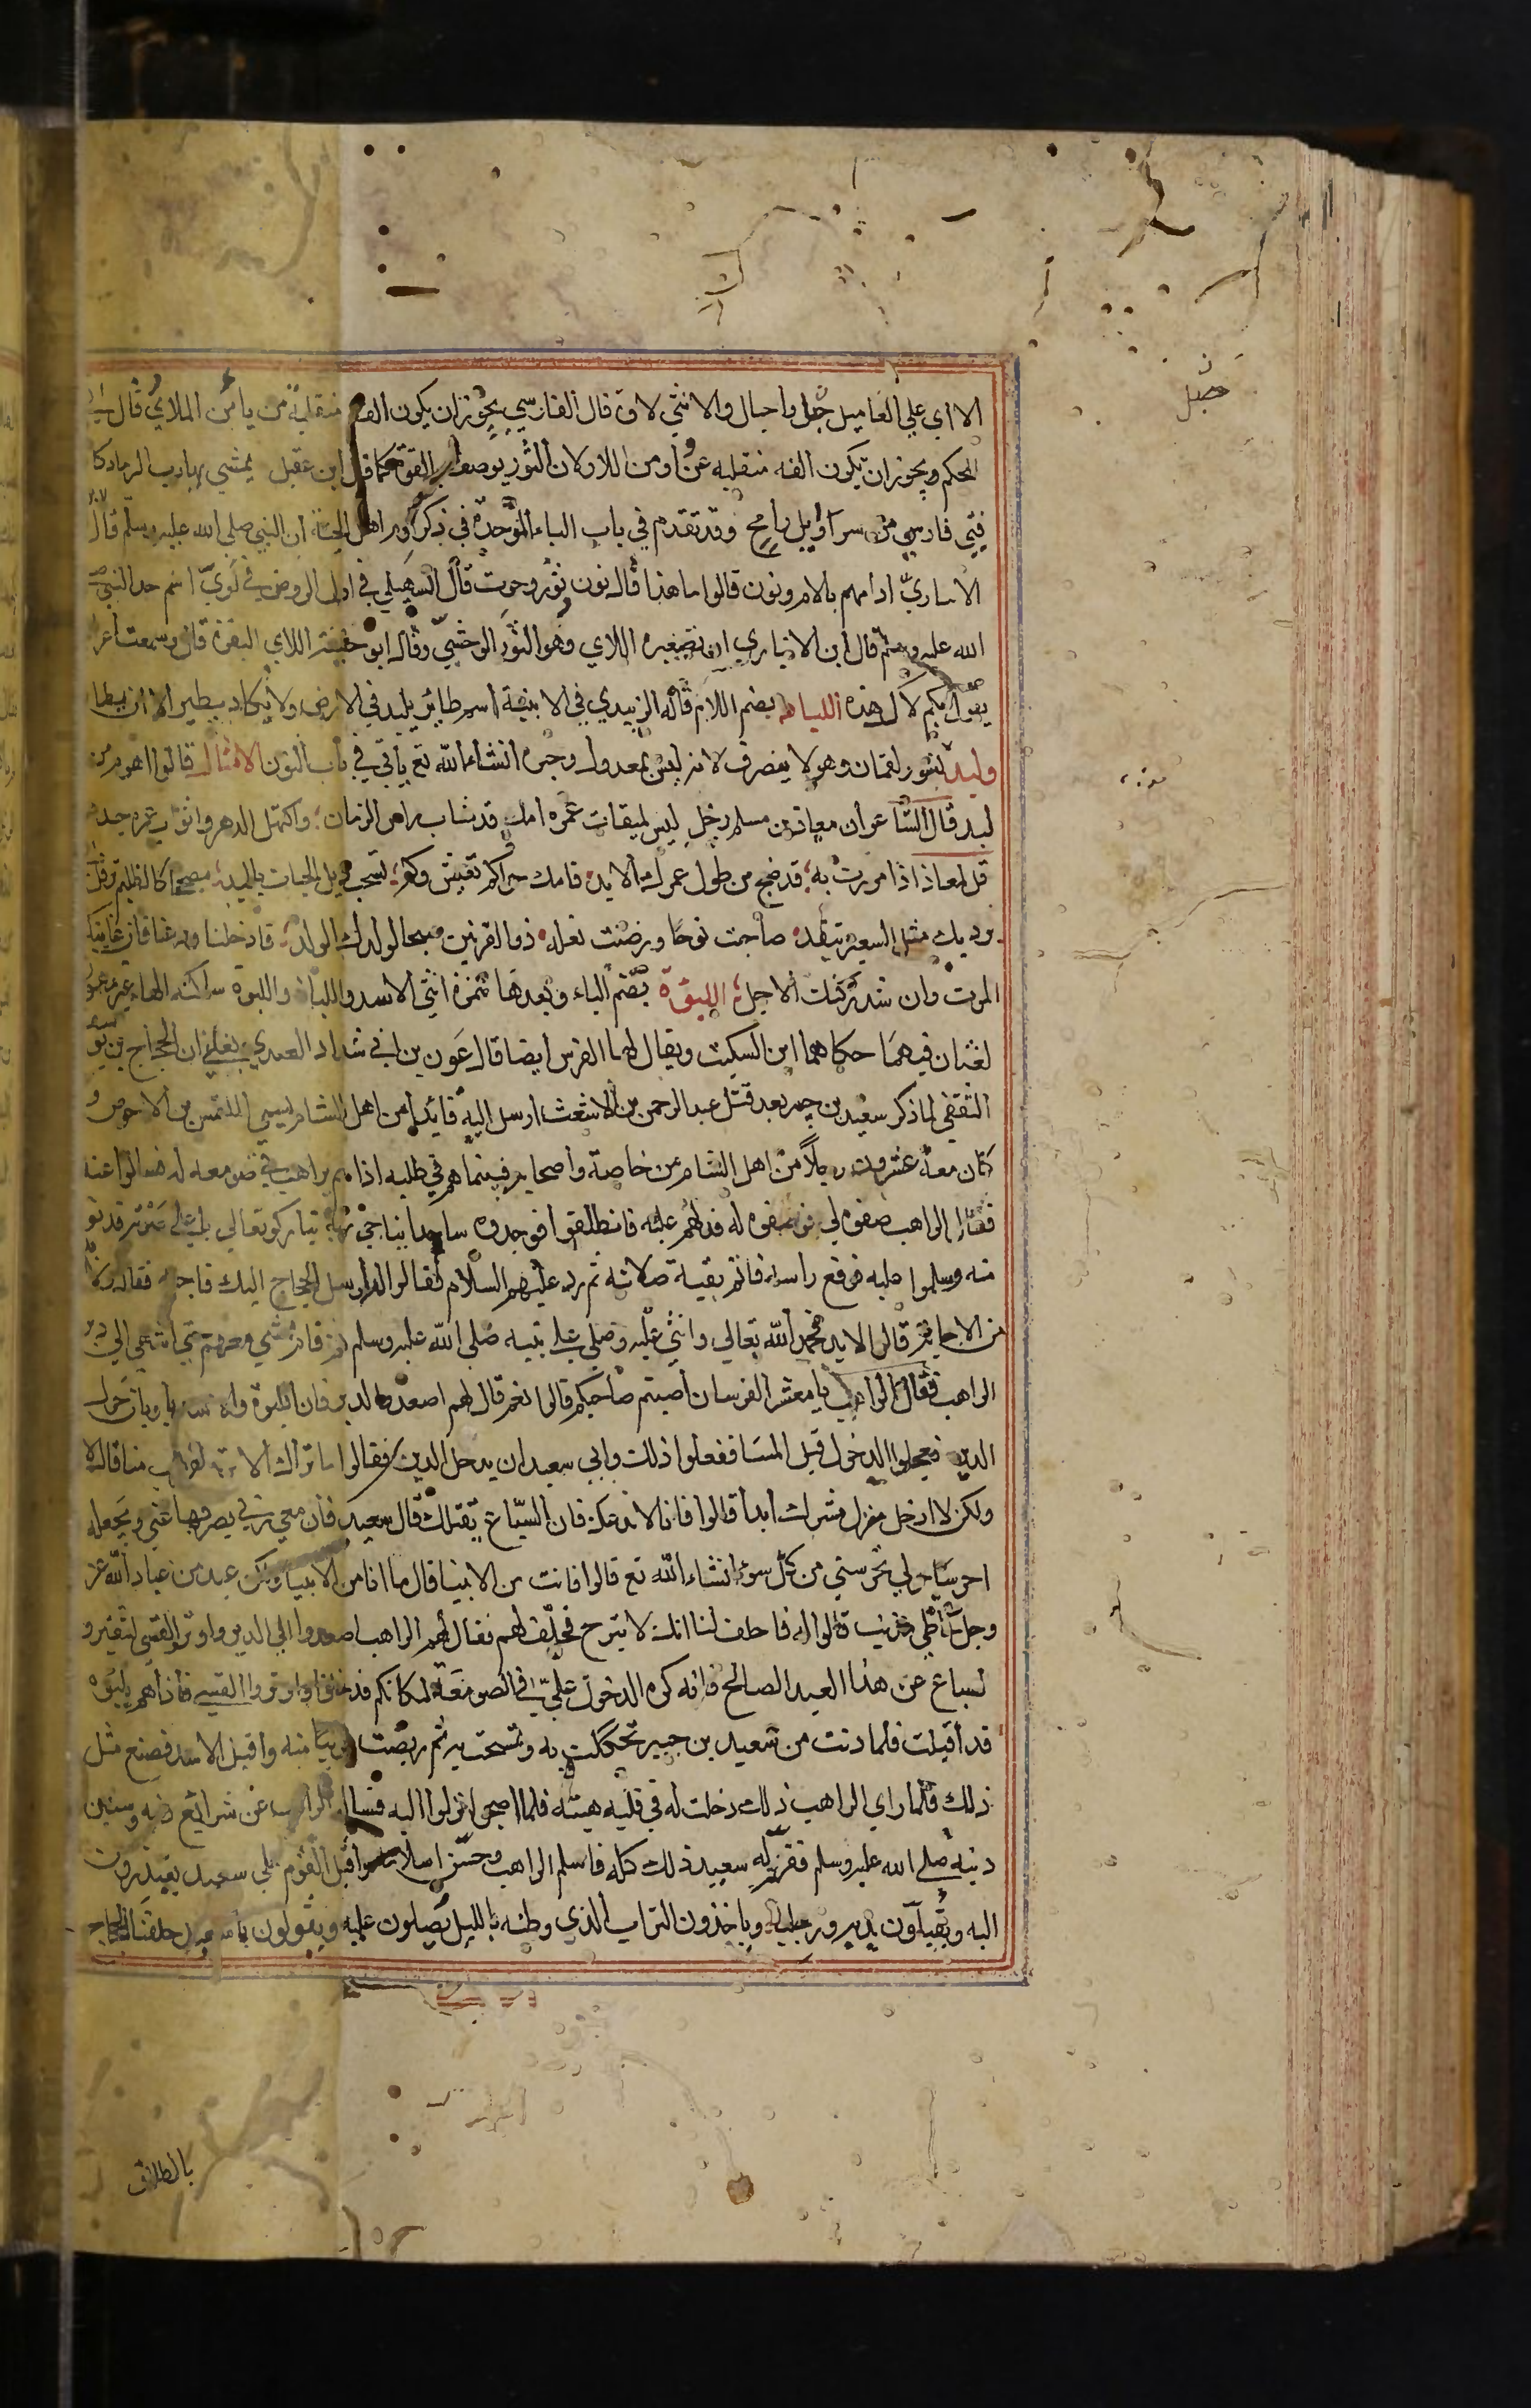 جبل
الااي علي الفاميل جبل واجبال والانثي لاة قال الفارسي يجوزان يكون الفه منقلبة من ياء من اللاي قال
الحكم ويجوز ان تكون الفه منقلبه عن واو من اللاو لان الثور يوصف بالقوة كما قال ابن عقيل يمشي بهاذب الرماد كا
فتي فارسي من سراويل رامح وقد تقدم في باب الباء الموحدة في ذكر اهل الجنة ان النبي صلي الله عليه وسلم قال
ادامهم بالام ونون قالوا ما هذا قال نون ثور وحوت قال السهيلي في اول الروض في لوي اسم جد النبي ص
الله عليه وسلم قال ابن الانباري انه تصغير اللاي وهو الثور الوحشي وقال ابو حنيفة اللاي البقرة قال وسمعت اعر
يقول بكم لاك هذه اللباد بضم اللام قاله الزبيدي في الابنية اسم طائر يلبد في الارض ولا يكاد يطير الا ان يطا
ولبد نسور لقمان وهو لا ينصرف لانه ليس بمعدول وخبره انشاء الله تع ياتي في باب النون الامثال قالوا اهرم من
لبد قال الشاعر ان معاذ بن مسلم رجل ليس لميقات عمره امد قد شاب راس الزمان واكتهل الدهر واثواب عمره جدد
قل لمعاذ اذا مررت به قد ضج من طول عمرك الابد فامك حوا كم تعيش وكم تسحب ذيل الحيات يالبد مصححا كالظليم ترفل
برديك مثل السعير تتقد صاحبت نوحا ورضت بغلة ذو القرنين شيخا لولدك الولد فارحلنا ودعنا فان غايتك
الموت وان شد ركنك الاجل اللبؤة بضم الباء وبعدها همزة انثي الاسد واللباة واللبوة ساكنه الباء غير مهمو
لغتان فيهما حكاهما ابن السكيت ويقال لها العرس ايضا قال عون بن ابي شداد العبدي بلغني ان الحجاج بن يو
الثقفي لما ذكر سعيد بن جبير بعد قتل عبد الرحمن بن الاشعث ارسل اليه قائدا من اهل الشام يسمي المتلمس بن الاحوص و
كان معه عشرون رجلا من اهل الشام من خاصة واصحابه فبينما هم في طلبه اذا هم براهب في صومعه له فسالوا عنه
فقال الراهب صفوه لي فوصفوه له فدلهم عليه فانطلقوا فوجدوه ساجدا يناجي ربه تبارك وتعالي باعلي صوته فدنو
منه وسلموا عليه فرفع راسه فاتم بقية صلاته ثم رد عليهم السلام فقالوا ارسل الحجاج اليك فاجبه فقال ولا
من الاجابة قالوا لابد فحمد الله تعالي واثني عليه وصلي علي نبيه صلي الله عليه وسلم ثم قام يمشي معهم حتي انتهي الي دير
الراهب فقال الراهب يا معشر الفرسان اصبتم صاحبكم قالوا نعم قال لهم اصعدوا الدير فان اللبوة والاسد ياويان حول
الدير فعجلوا الدخول قبل المسا ففعلوا ذلك وابي سعيد ان يدخل الدير فقالوا ما نراك الا تريد الهرب منا قال لا
ولكن لا ادخل منزل مشرك ابدا قالوا فانا لا ندعك فان السباع تقتلك قال سعيد فان معي ربي يصرفها عني ويجعله
احرسا حولي تحرسني من كل سوء انشاء الله تع قالوا فانت من الانبيا قال ما انا من الانبيا ولكن عبد من عباد الله عز
وجل خاطي مذنب قالوا له فاحلف لنا انك لا تبرح فحلف لهم فقال لهم الراهب اصعدوا الي الدير واوتروا القسي لتنفروا
لسباع عن هذا العبد الصالح فانه كره الدخول علي في الصومعة لمكانكم فدخلوا واوتروا القسي فاذاهم بلبوة
قد اقبلت فلما دنت من سعيد بن جبير تحككت به وتمسحت به ثم ربضت قريبا منه واقبل الاسد فصنع مثل
ذلك فلما راي الراهب ذلك دخلت له في قلبه هيبته فلما اصبحوا نزلوا اليه فساله الراهب عن شرائع دينه وسنن
دنيه صلي الله عليه وسلم ففسر له سعيد ذلك كله فاسلم الراهب وحسن اسلامه واقبل القوم علي سعيد يعتذرون
اليه ويقبلون يديه ورجليه وياخذون التراب الذي وطئه بالليل يصلون عليه ويقولون يا سعيد حلفنا الحجاج
بالطلاق